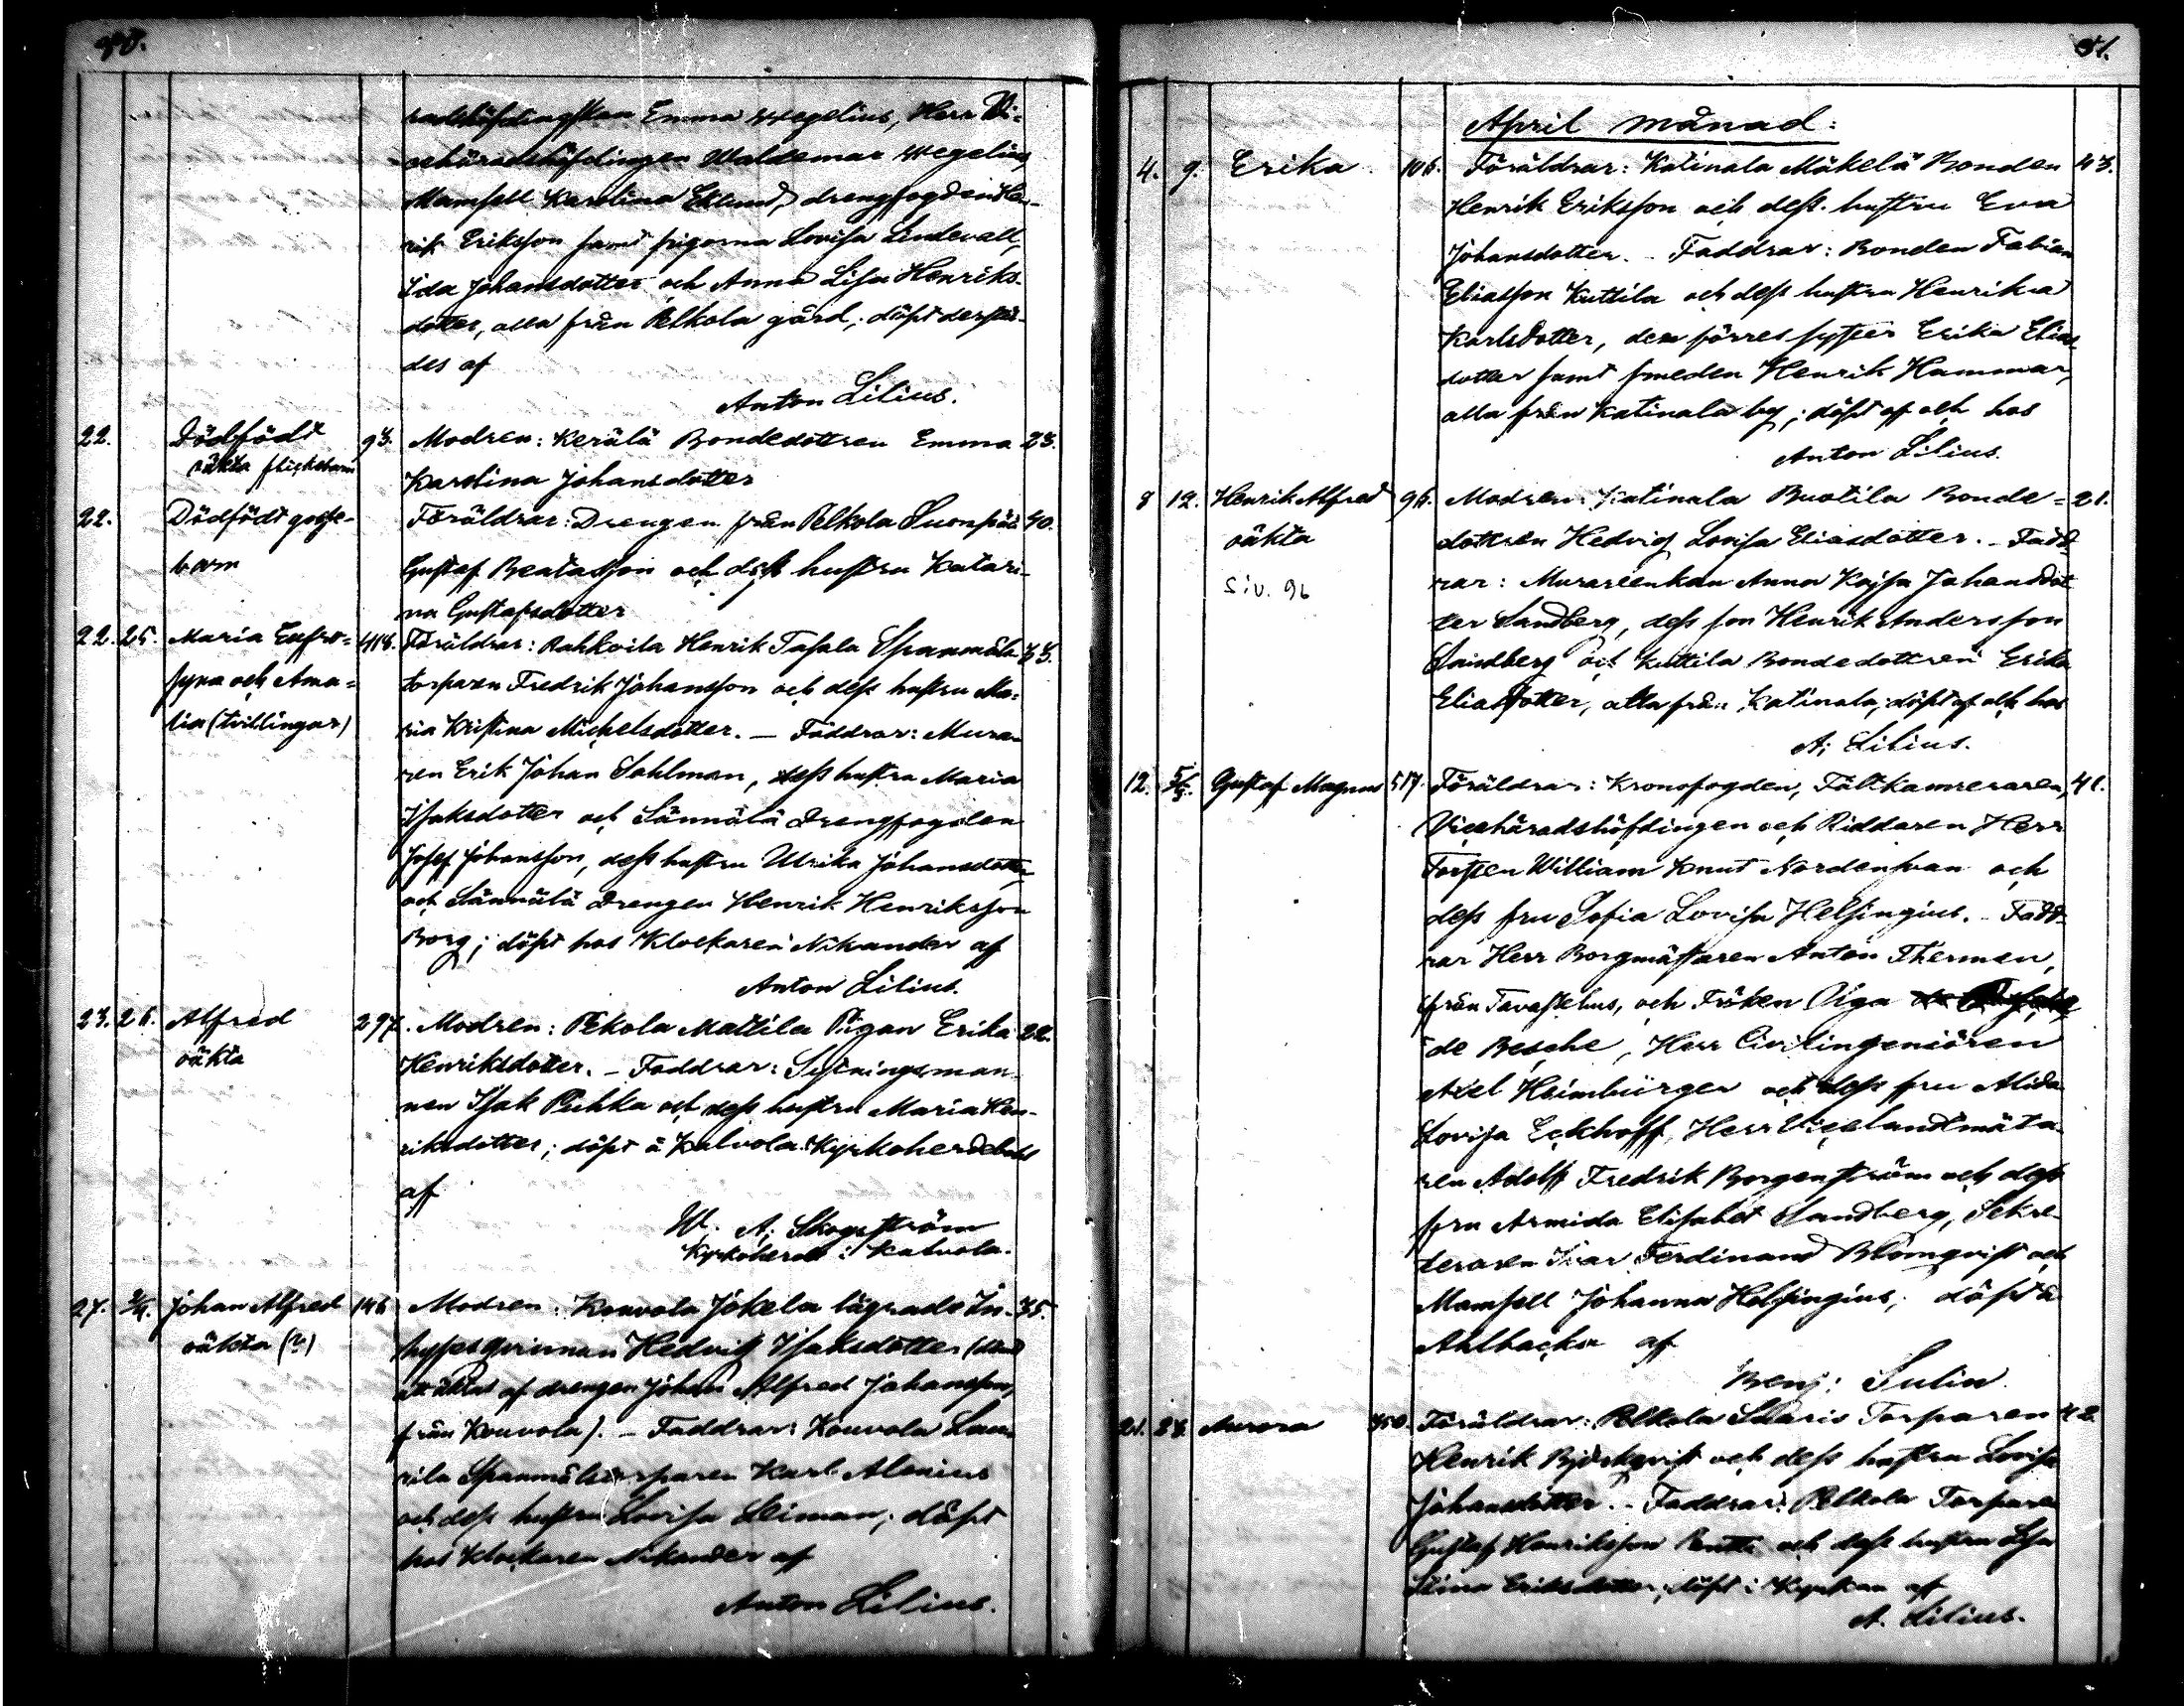 radshöfdingskan Emma Wegelius, Herr Vi-
cehäradshöfdingen Waldemar Wegelius,
Mamsell Karolina Eklund, drengfogden Hen-
rik Eriksson samt pigorna Lovisa Lindevall,
Ida Johansdotter och Anna Lisa Henriks-
dotter, alla från Pelkola gård; döpt derstä-
des af
Anton Lilius.
22. Dödfödt 93. Modren: Kerälä Bondedottren Emma 23.
oäkta flickebarn
Karolina Johansdotter
22. Dödfödt gosse- Föräldrar: Drengen från Pelkola Suonpää 40.
barn Gustaf Beatasson och dess hustru Katari-
na Gustafsdotter
22. 25. Maria Eufro- 418. Föräldrar: Rahkoila Henrik Tafala Spanmåls 33.
syna och Ama- torparen Fredrik Johansson och dess hustru Ma-
lia (tvillingar) ria Kristina Michelsdotter. – Faddrar: Mura-
ren Erik Johan Sahlman, dess hustru Maria
Isaksdotter och Sännälä Drengfogden
Josef Johansson, dess hustru Ulrika Johansdotter
och Sännälä Drengen Henrik Henriksson
Borg; döpt hos Klockaren Nikander af
Anton Lilius.
23. 26. Alfred 297. Modren: Pekola Mattila Pigan Erika 22.
oäkta Henriksdotter. – Faddrar: Sytningsman-
nen Isak Puhka och dess hustru Maria Hen-
riksdotter; döpt å Kalvola Kyrkoherdebol
af
W. A. Skogström
Kyrkoherde i Kalvola.
27. 2/4. Johan Alfred 146 Modren: Kouvola Jokela lägrade In- 35.
oäkta (?) hysesqvinnan Hedvig Isaksdotter
af drengen Johan Alfred Johansson,
från Kouvola). – Faddrar: Kouvola Lau-
rila Spanmålstorparen Karl Alenius
och dess hustru Lovisa Leiman; döpt
hos Klockaren Nikander af
Anton Lilius.
31.
April månad:
4. 9. Erika 106. Föräldrar: Katinala Mäkelä Bonden 43.
Henrik Eriksson och dess hustru Eva
Johansdotter. – Faddrar: Bonden Fabian
Eliasson Kuttila och dess hustru Henrika
Karlsdotter, den förres syster Erika Elias-
dotter samt smeden Henrik Hammar,
alla från Katinala by; döpt af och hos
Anton Lilius.
8 12. Henrik Alfred 96. Modren: Katinala Buotila Bonde- 21.
oäkta dottren Hedvig Lovisa Eliasdotter. – Fadd
Siv. 96 rar: Murareenkan Anna Kajsa Johansdot
ter Sandberg, dess son Henrik Andersson
Sandberg och Kuttila Bondedottren Erika
Eliasdotter, alla från Katinala; döpt af och hos
A. Lilius.
12. 5/5. Gustaf Magnus 517. Föräldrar: Kronofogden, Fältkamreraren, 41.
Vicehäradshöfdingen och Riddaren Herr
Torsten William Knut Nordensvan och
dess fru Sofia Lovisa Helsingius. – Fadd-
rar Herr Borgmästaren Anton Thermen,
från Tavastehus, och Fröken Olga
de Besche, Herr Civilingeniören
Axel Heimbürger och dess fru Alida
Lovisa Eckhoff, Herr Vicelandtmäta-
ren Adolf Fredrik Borgenström och dess
fru Armida Elisabet Sandberg, Sekre-
teraren Ivar Ferdinand Blomqvist och
Mamsell Johanna Helsingius; döpt å
Ahlbacka af
Benj: Sulin
21. 24. Aurora 450. Föräldrar: Pelkola Saaris Torparen 42.
Henrik Björkqvist och dess hustru Lovisa
Johansdotter. – Faddrar: Pelkola Torparen
Gustaf Henriksson Pentti och dess hustru Lisa
Stina Eriksdotter; döpt i Kyrkan af
A. Lilius.